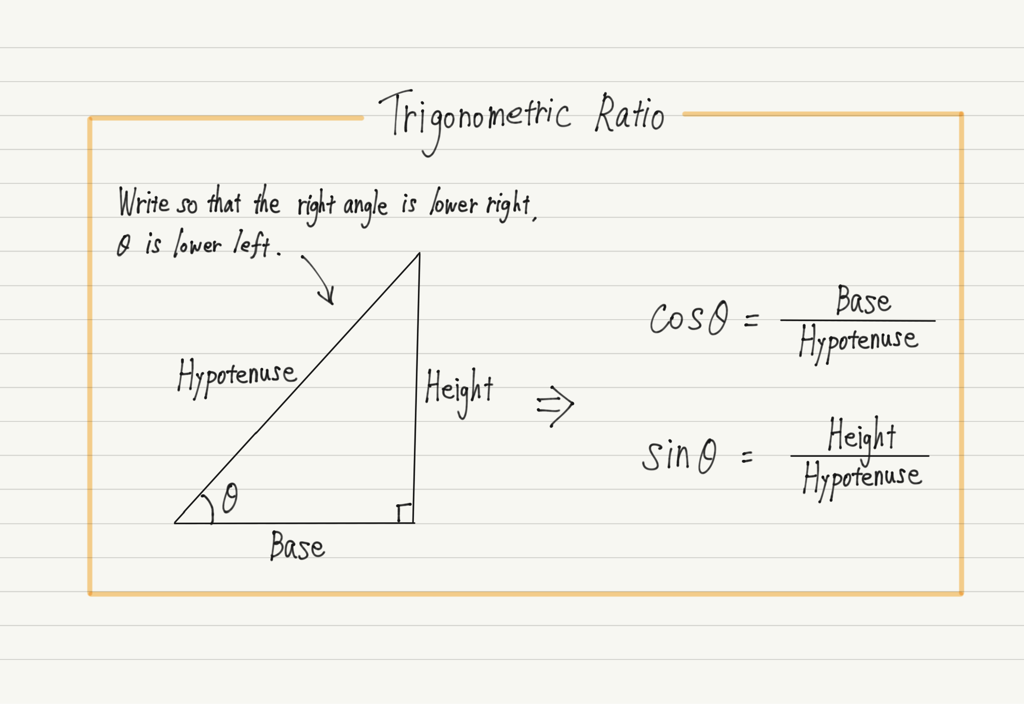 Trigonometric Ratio
Write so that the right angle is lower right,
θ is lower left.
Hypotenuse
Height
θ
Base
⇒
cosθ = Base / Hypotenuse
sinθ = Height / Hypotenuse